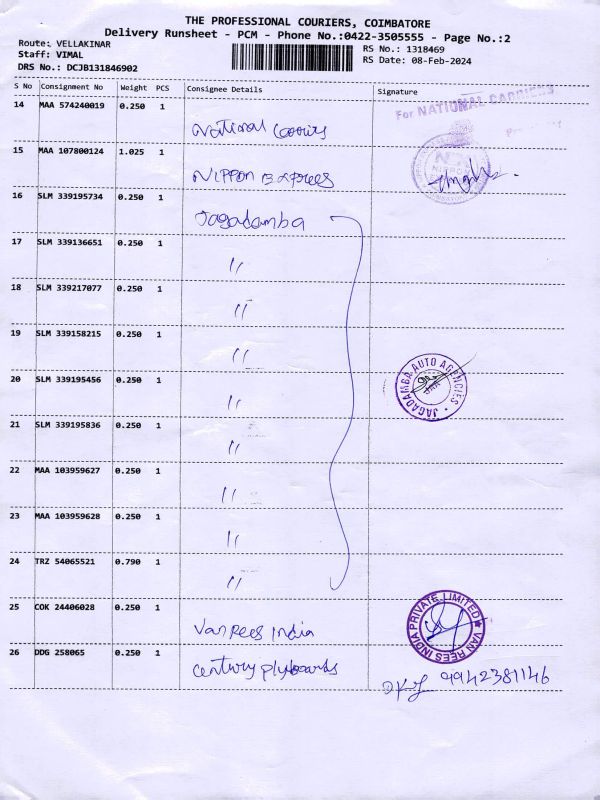 THE PROFESSIONAL COURIERS, COIMBATORE
Delivery Runsheet - PCM - Phone No.:0422-3505555 - Page No.:2
Route: VELLAKINAR
RS No.: 1318469
Staff: VIMAL
RS Date: 08-Feb-2024
DRS No.: DCJB131846902
S No Consignment No Weight PCS Consignee Details Signature
14 MAA 574240019 0.250 1
For NATIONAL CARRIERS
National Carriers
15 MAA 107800124 1.025 1
NIPPON
NIPPON Express
16 SLM 339195734 0.250 1
Jagadamba
17 SLM 339136651 0.250 1
"
18 SLM 339217077 0.250 1
"
19 SLM 339158215 0.250 1
"
JAGADAMBA AUTO AGENCIES
20 SLM 339195456 0.250 1
"
21 SLM 339195836 0.250 1
"
22 MAA 103959627 0.250 1
"
23 MAA 103959628 0.250 1
"
24 TRZ 54065521 0.790 1
"
25 COK 24406028 0.250 1
VAN REES INDIA PRIVATE LIMITED
Van Rees India
26 DDG 258065 0.250 1
Century plyboards
9942381146